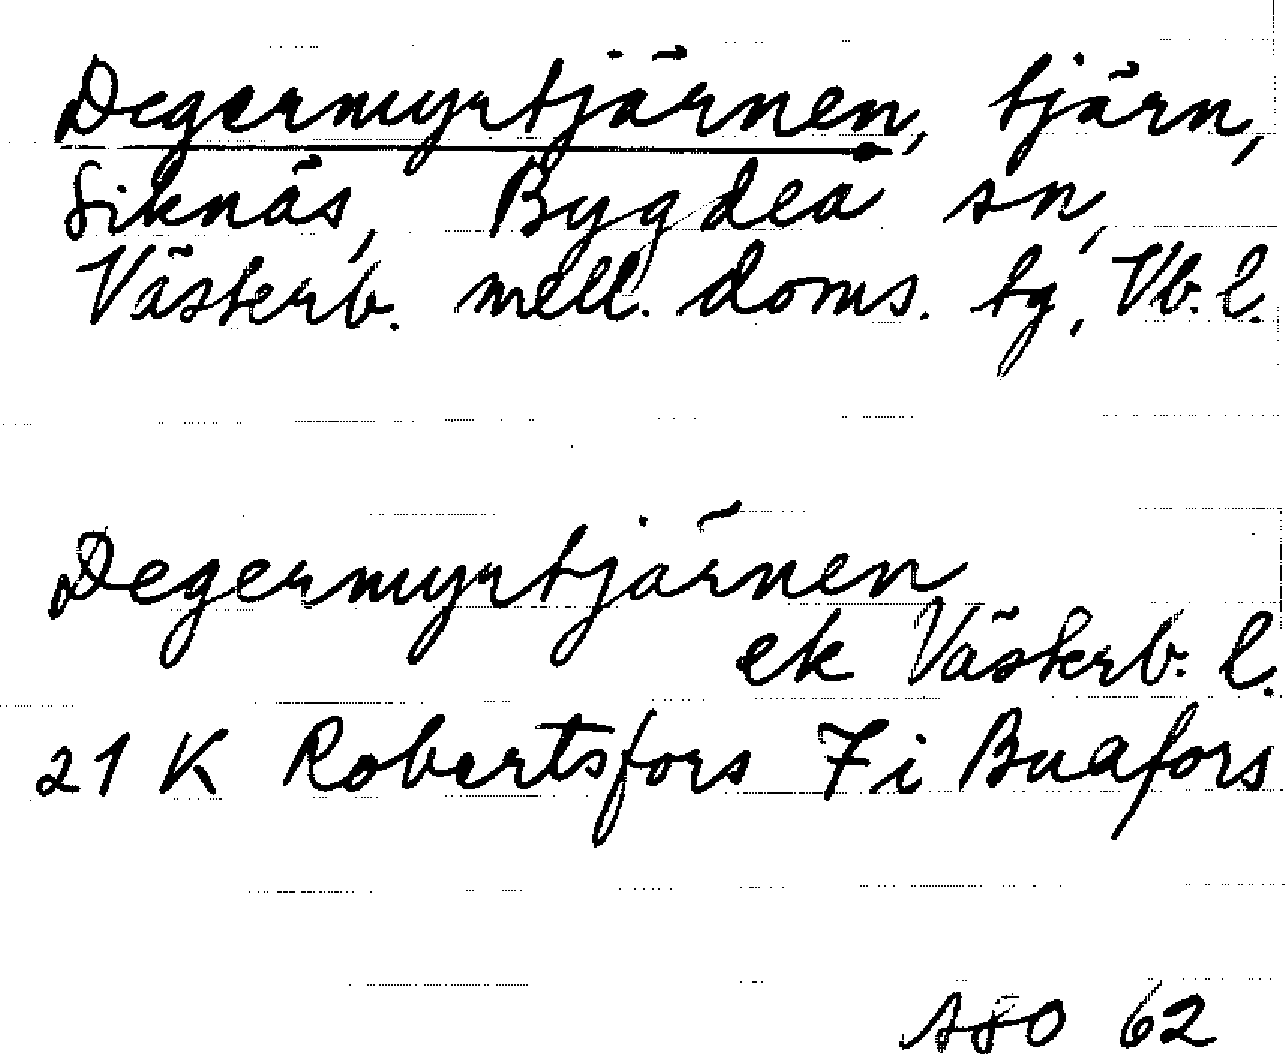 Degermyrtjärnen, tjärn,
Siknäs, Bygdeå sn,
Västerb. mell. doms. tg, Vb. l.
Degermyrtjärnen
ek Västerb. l.
21 K Robertsfors 7 i Buafors
ASO 62